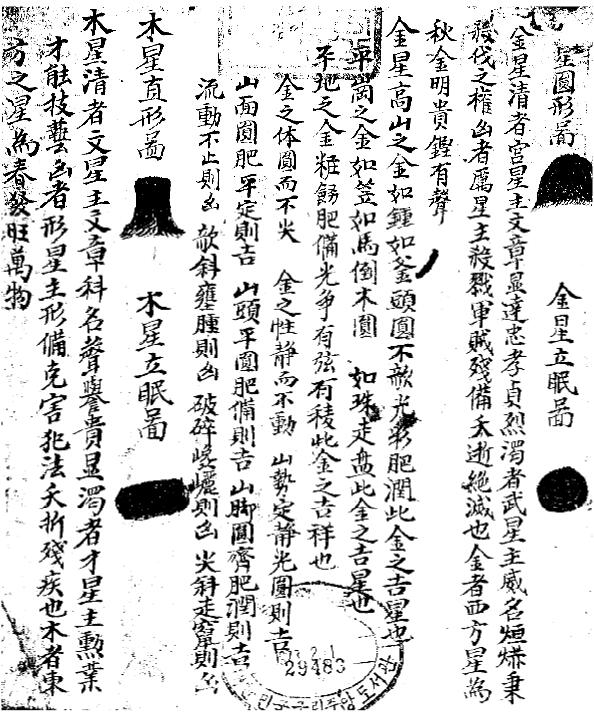 星圓形啚 金星立眠啚
金星清者官星主文章显達忠孝貞烈濁者武星主威名烜爀秉
殺伐之權凶者厲星主殺戮軍賊殘備夭逝絶滅也金者西方星為
秋金明貴鏗有聲
金星高山之金如鍾如釜頭圓不欹光彩肥潤此金之吉星也
平崗之金如笠如馬倒木圓 如珠走盘此金之吉星也
平地之金糚餳肥備光争有弦有稜此金之吉祥也
金之体圓而不尖 金之性静而不動 山勢定静光圓則吉
山面圓肥平定則吉 山頭平圓肥備則吉 山脚圓齊肥潤則吉
流動不止則凶 欹斜壅腫則凶 破碎巉巖則凶 尖斜走竄則凶
木星直形啚 木星立眠啚
木星清者文星主文章科名聲譽貴显濁者才星主勲業
才能技藝凶者形星主形備克害犯法夭折殘疾也木者東
方之星為春發旺萬物
29483